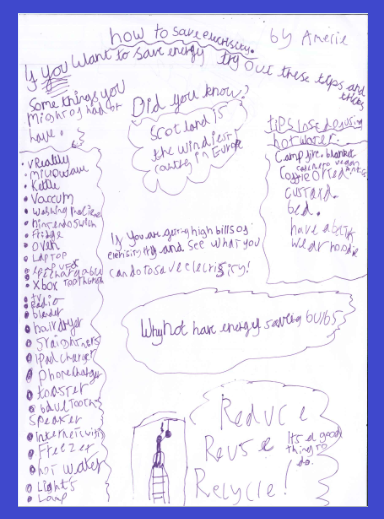 how to save elecrisity.
by Amelie
If you want to save energy try out these tips and
tricks
Some things you
might of had or
have.
• VReality
• microwave
• Kettle
• Vaccum
• washing machine
• nintendo switch
• fridge
• oven
• Laptop
• rechargable
toothbrush
• XBox
• tv
• Radio
• blender
• hairdryer
• Straightners
• iPad charger
• Phone charger
• toaster
• blutooth
Speaker
• internet wifi
• Freezer
• hot water
• Lights
• Lamp
Did you know?
Scotland is
the windiest
country in Europe
If you are getting high bills of
elecrisity try and see what you
can do to save elecrisity!
tips
hot water.
Camp fire. blanket
Coffie or tea
custard.
bed.
have a bath
wear hoodie
Why not have energy saving bulbs
Reduce
Reuse
Recycle!
It's a good
thing to
do.